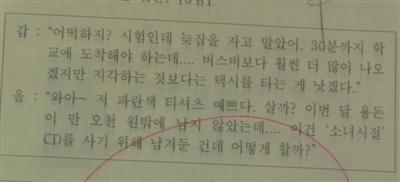 갑 : "어떡하지? 시험인데 늦잠을 자고 말았어. 30분까지 학
교에 도착해야 하는데.... 버스비보다 훨씬 더 많이 나오
겠지만 지각하는 것보다는 택시를 타는 게 낫겠다."
을 : "와아~ 저 파란색 티셔츠 예쁘다. 살까? 이번 달 용돈
이 만 오천 원밖에 남지 않았는데.... 이건 '소녀시절'
CD를 사기 위해 남겨둔 건데 어떻게 할까?"